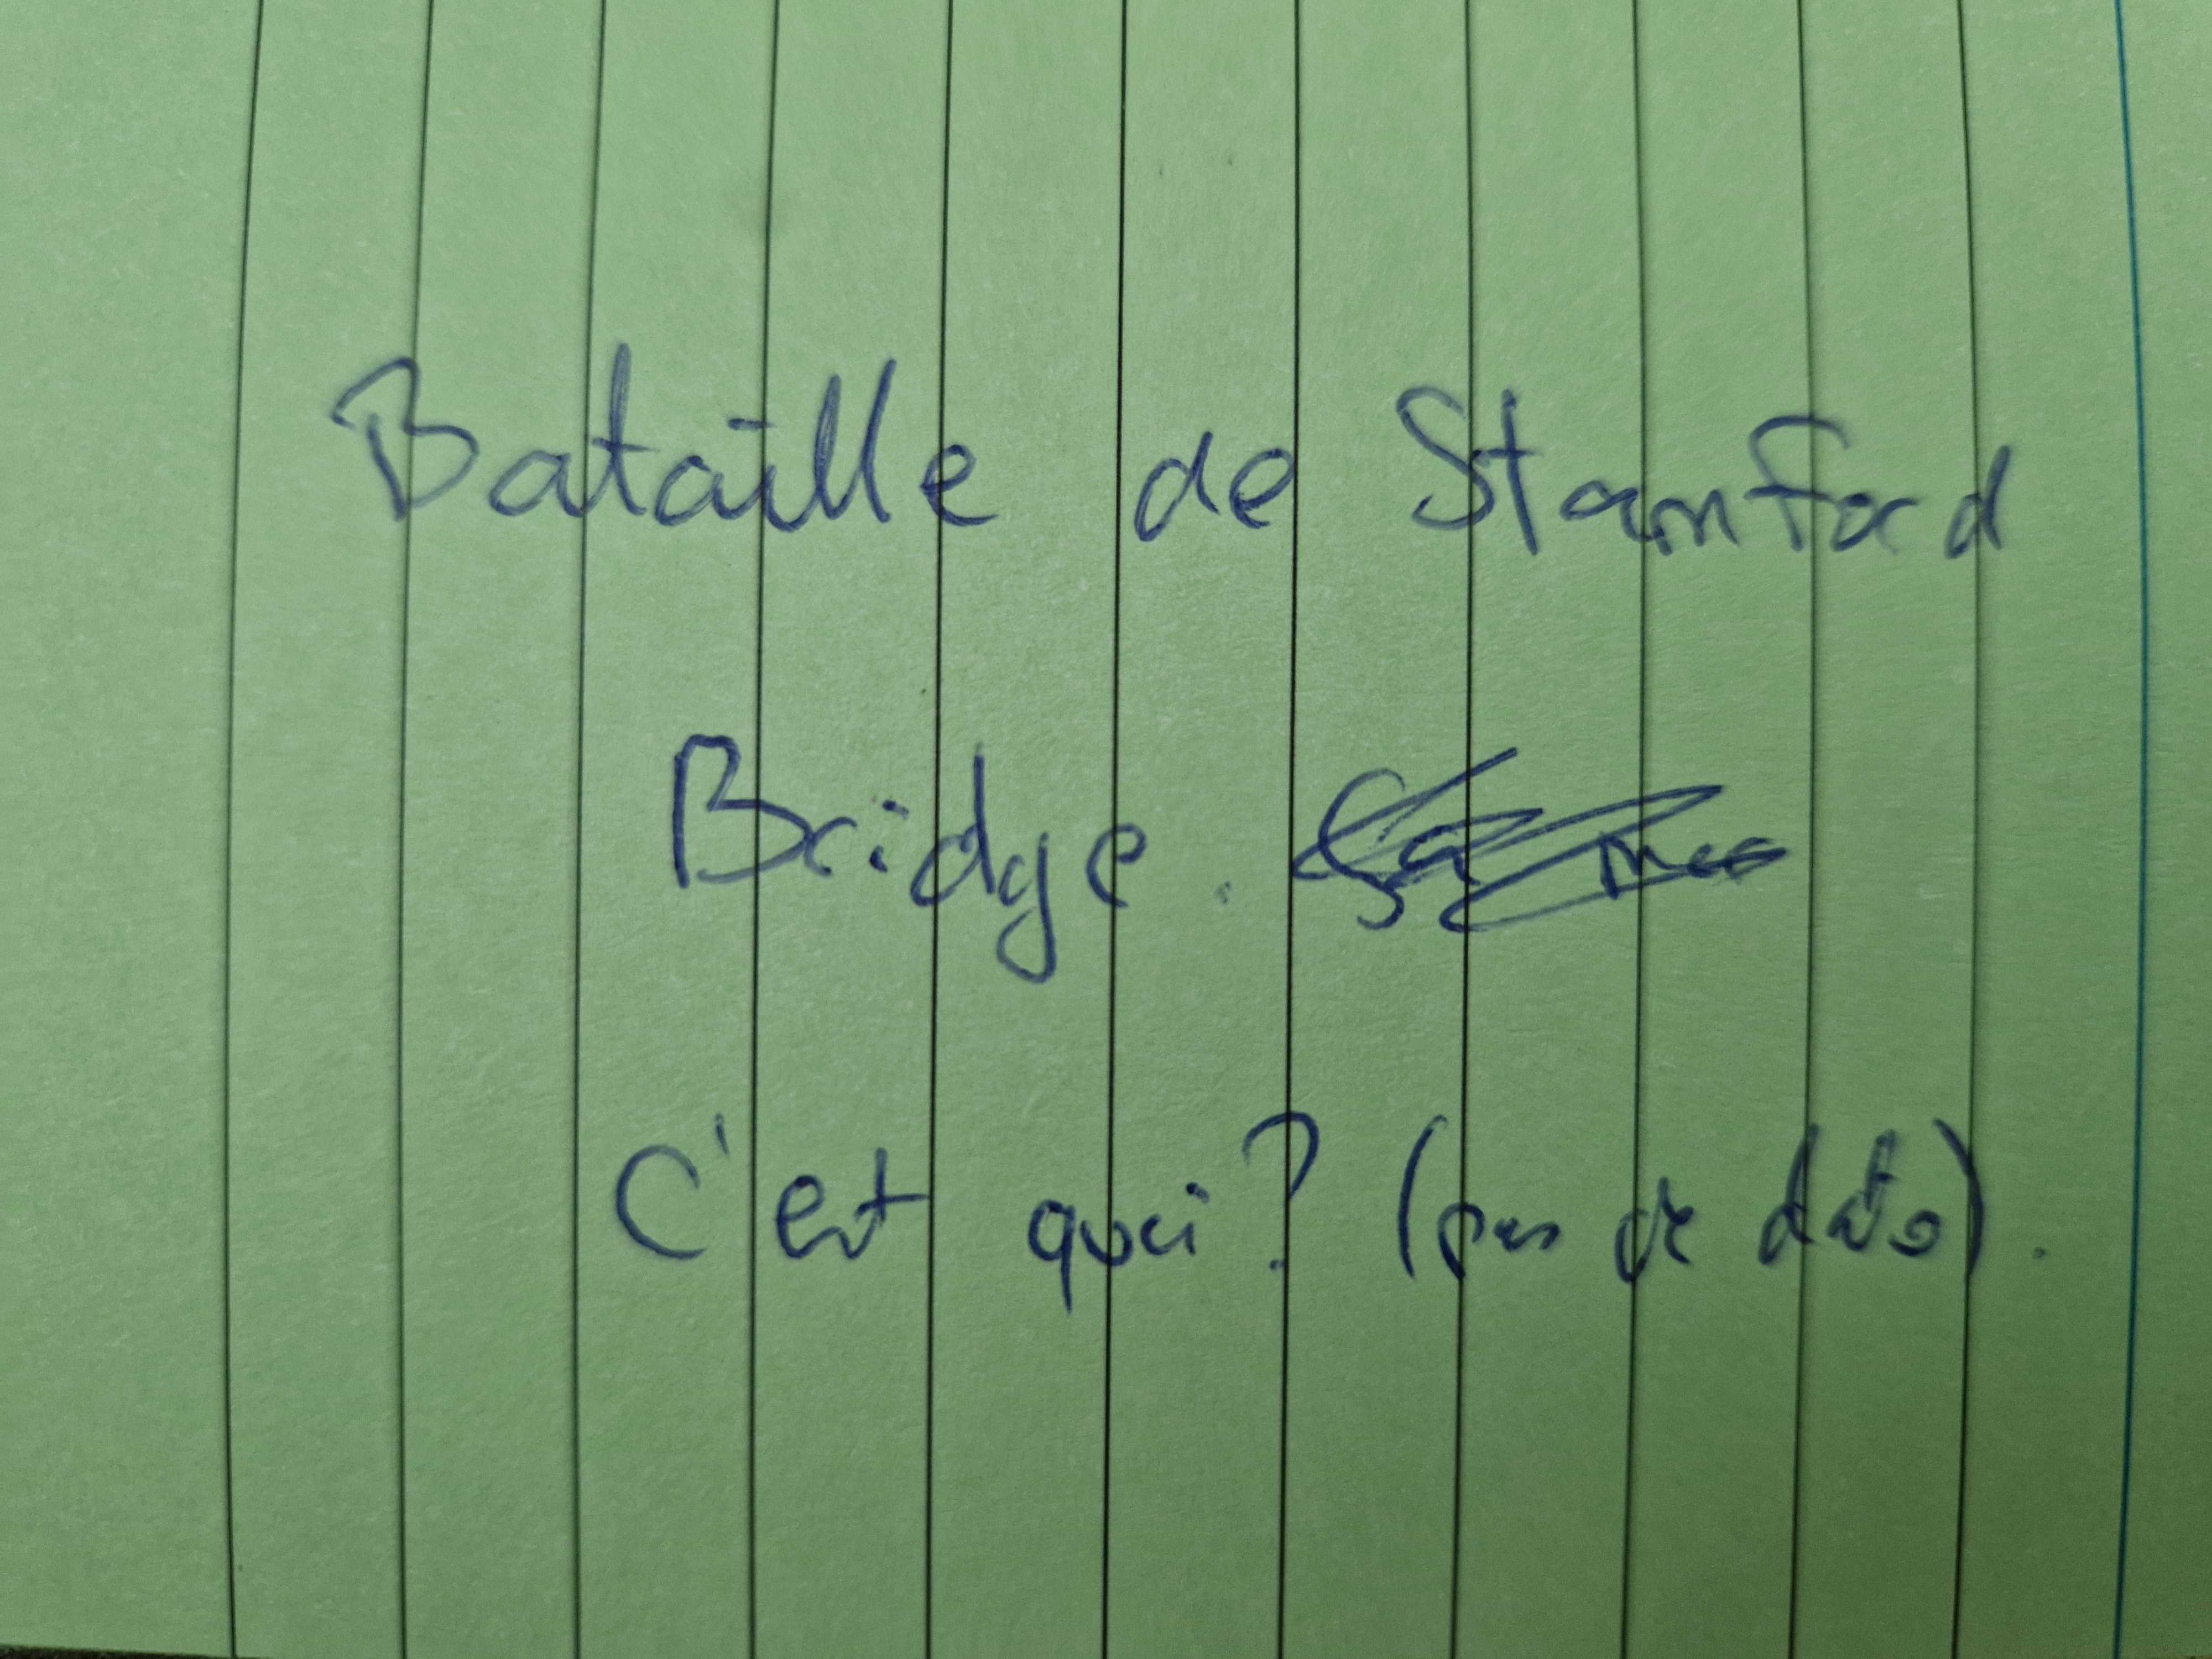 Bataille de Stamford
Bridge.
C'est quoi? (pas de date).